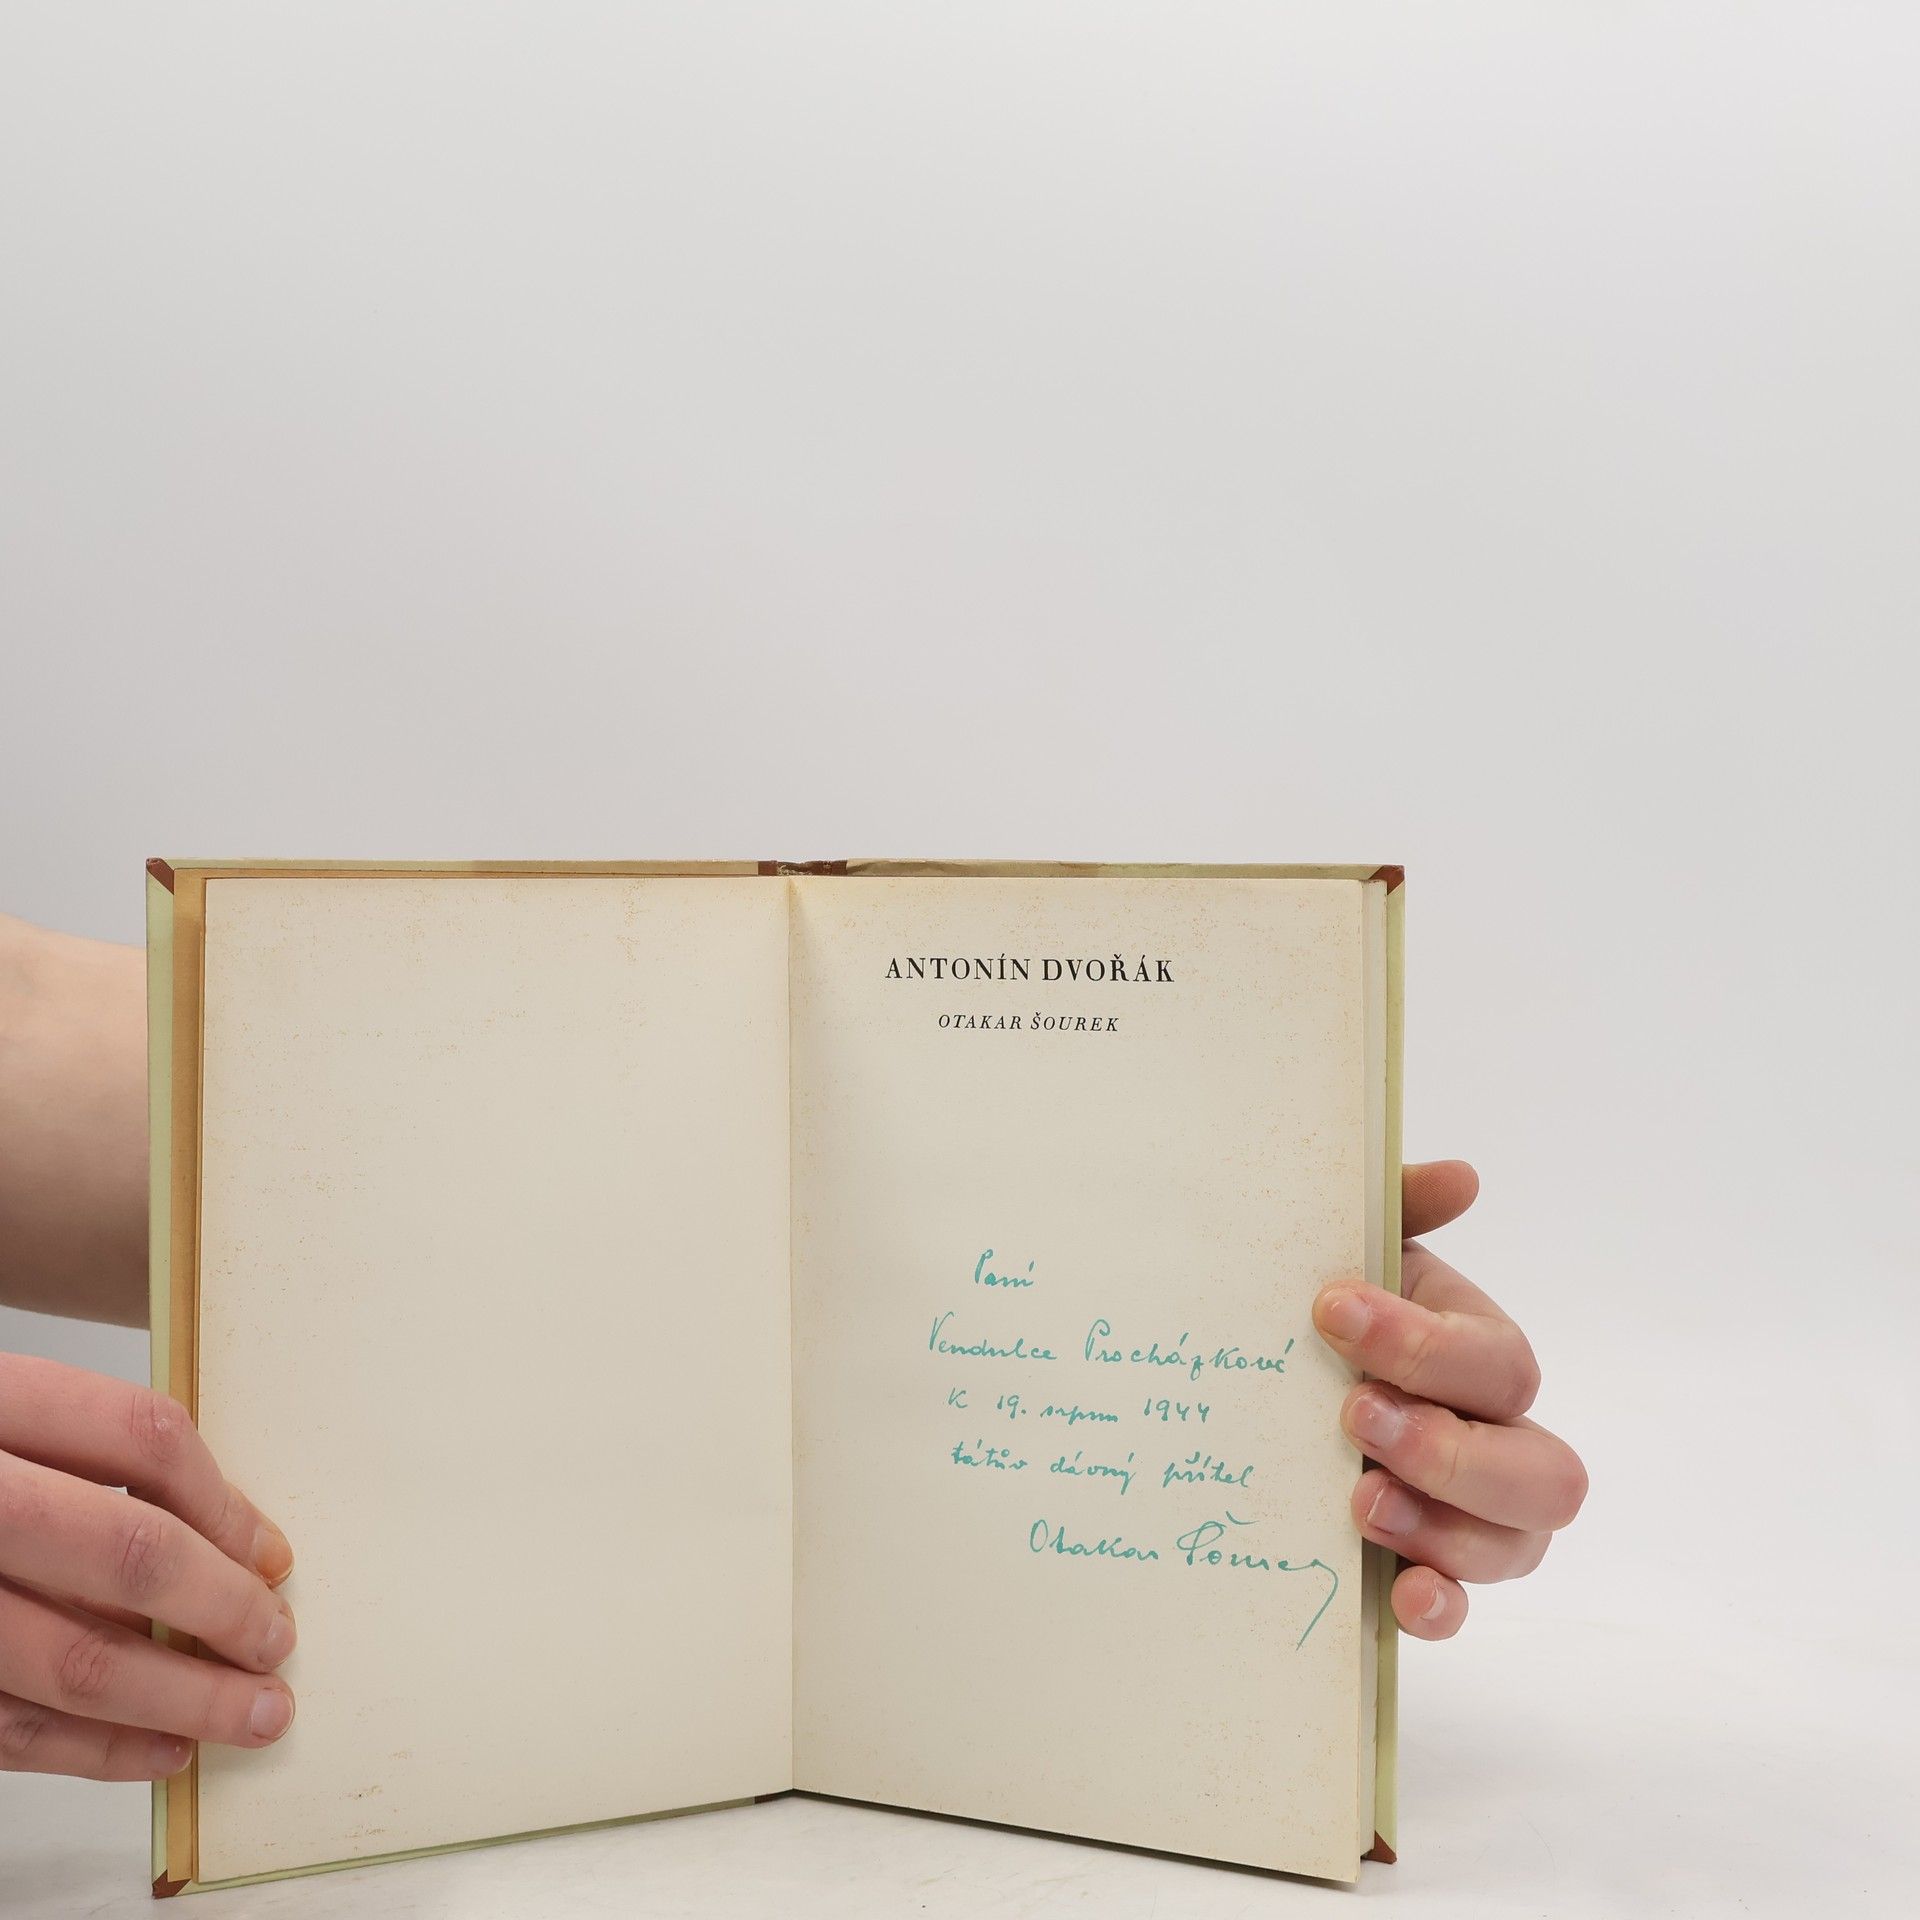 ANTONÍN DVOŘÁK
OTAKAR ŠOUREK
Paní
Vendulce Procházkové
K 19. srpnu 1944
tátův dávný přítel
Otakar Šourek